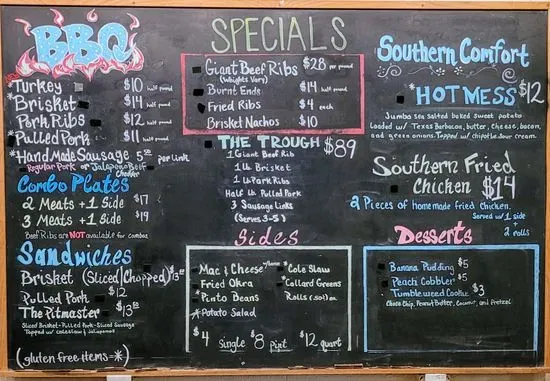 BBQ
*Turkey $10 half pound
*Brisket $14 half pound
Pork Ribs $12 half pound
*Pulled Pork $11 half pound
*Hand Made Sausage 5.50 per link
Regular Pork or Jalapeno Beef Cheddar
Combo Plates
2 Meats + 1 Side $17
3 Meats + 1 Side $19
Beef Ribs are NOT available for combos
Sandwiches
Brisket (Sliced/Chopped) $13.50
Pulled Pork $12
The Pitmaster $13.50
Sliced Brisket-Pulled Pork-Sliced Sausage
Topped w/ coleslaw & Jalapenos
(gluten free items=*)
SPECIALS
Giant Beef Ribs $28 per pound
(Weights Vary)
Burnt Ends $14 half pound
Fried Ribs $4 each
Brisket Nachos $10
THE TROUGH $89
1 Giant Beef Rib
1 lb Brisket
1 lb Pork Ribs
Half lb Pulled Pork
3 Sausage Links
(Serves 3-5)
Sides
Mac & Cheese
Fried Okra
*Pinto Beans
*Potato Salad
*Cole Slaw
*Collard Greens
Rolls (.50) ea.
$4 Single $8 pint $12 quart
Southern Comfort
*HOT MESS $12
Jumbo sea salted baked sweet potato
Loaded w/ Texas Barbacoa, butter, cheese, bacon,
and green onions. Topped w/ chipotle sour cream.
Southern Fried
Chicken $14
2 Pieces of homemade fried chicken.
Served w/ 1 side
2 rolls
Desserts
Banana Pudding $5
Peach Cobbler $5
Tumbleweed Cookie $3
Choco Chip, Peanut Butter, Coconut, and Pretzel